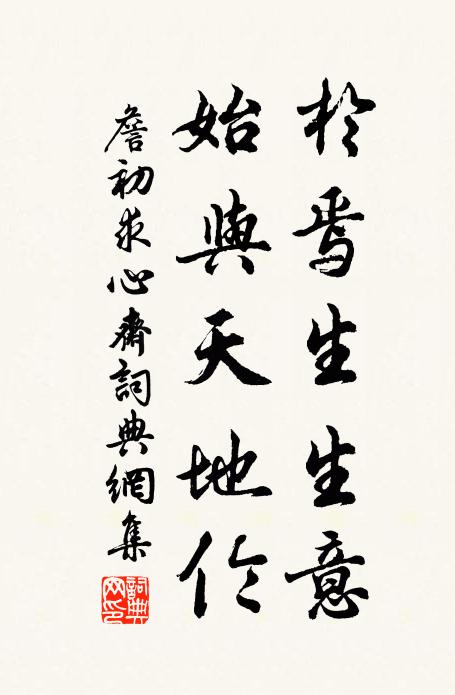 於焉生生意
始與天地伶
詹初求心齋詞典網集
詞典
网印